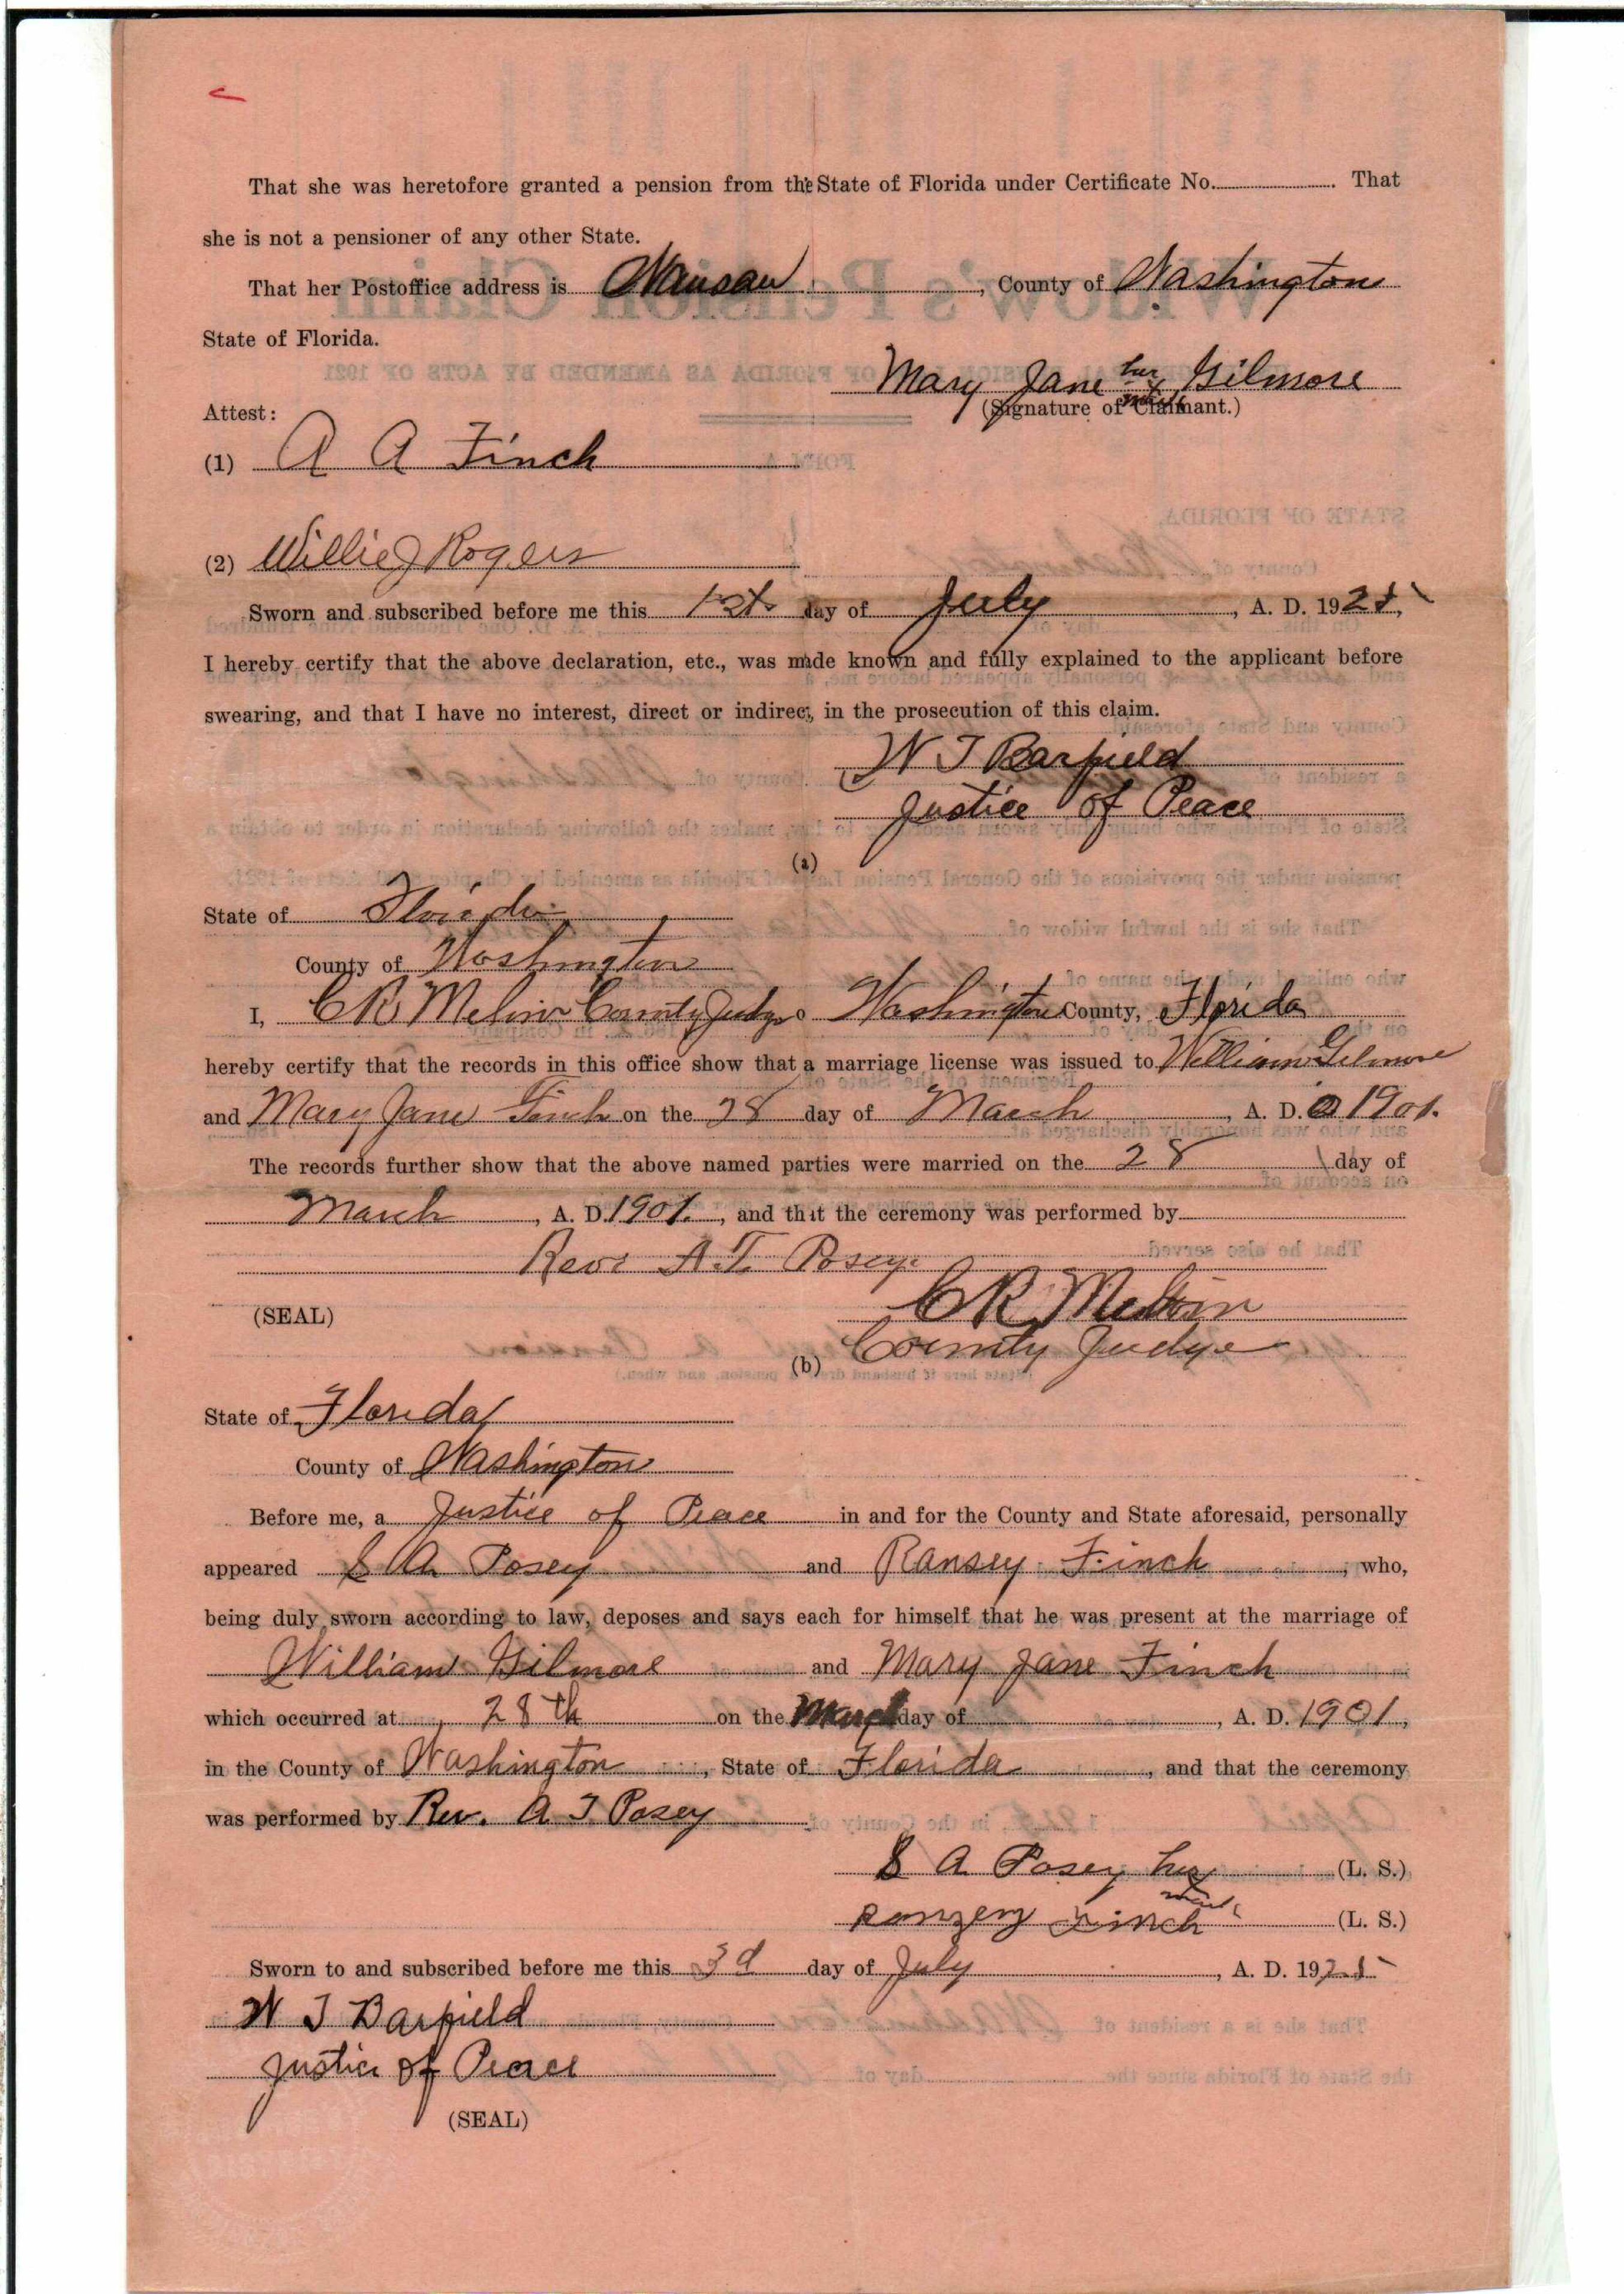 That she was heretofore granted a pension from the State of Florida under Certificate No. That
she is not a pensioner of any other State.
That her Postoffice address is Wausau, County of Washington
State of Florida.
Mary Jane her x mark Gilmore
(Signature of Claimant.)
Attest:
(1) A A Finch
(2) Willie J Rogers
Sworn and subscribed before me this 1st day of July, A. D. 1925,
I hereby certify that the above declaration, etc., was made known and fully explained to the applicant before
swearing, and that I have no interest, direct or indirect, in the prosecution of this claim.
W T Barfield
Justice of Peace
(a)
State of Florida
County of Washington
I, C R Melvin County Judge Washington County, Florida
hereby certify that the records in this office show that a marriage license was issued to William Gilmore
and Mary Jane Finch on the 28 day of March, A. D. 1901.
The records further show that the above named parties were married on the 28 day of
March, A. D. 1901., and that the ceremony was performed by
Rev. A. T. Posey.
(SEAL)
C R Melvin
County Judge
(b)
State of Florida
County of Washington
Before me, a Justice of Peace in and for the County and State aforesaid, personally
appeared S A Posey and Ransey Finch, who,
being duly sworn according to law, deposes and says each for himself that he was present at the marriage of
William Gilmore and Mary Jane Finch
which occurred at 28th on the March day of, A. D. 1901,
in the County of Washington, State of Florida, and that the ceremony
was performed by Rev. A T Posey
S A Posey her x mark (L. S.)
Ranzey Finch (L. S.)
Sworn to and subscribed before me this 3d day of July, A. D. 1925
W T Barfield
Justice of Peace
(SEAL)